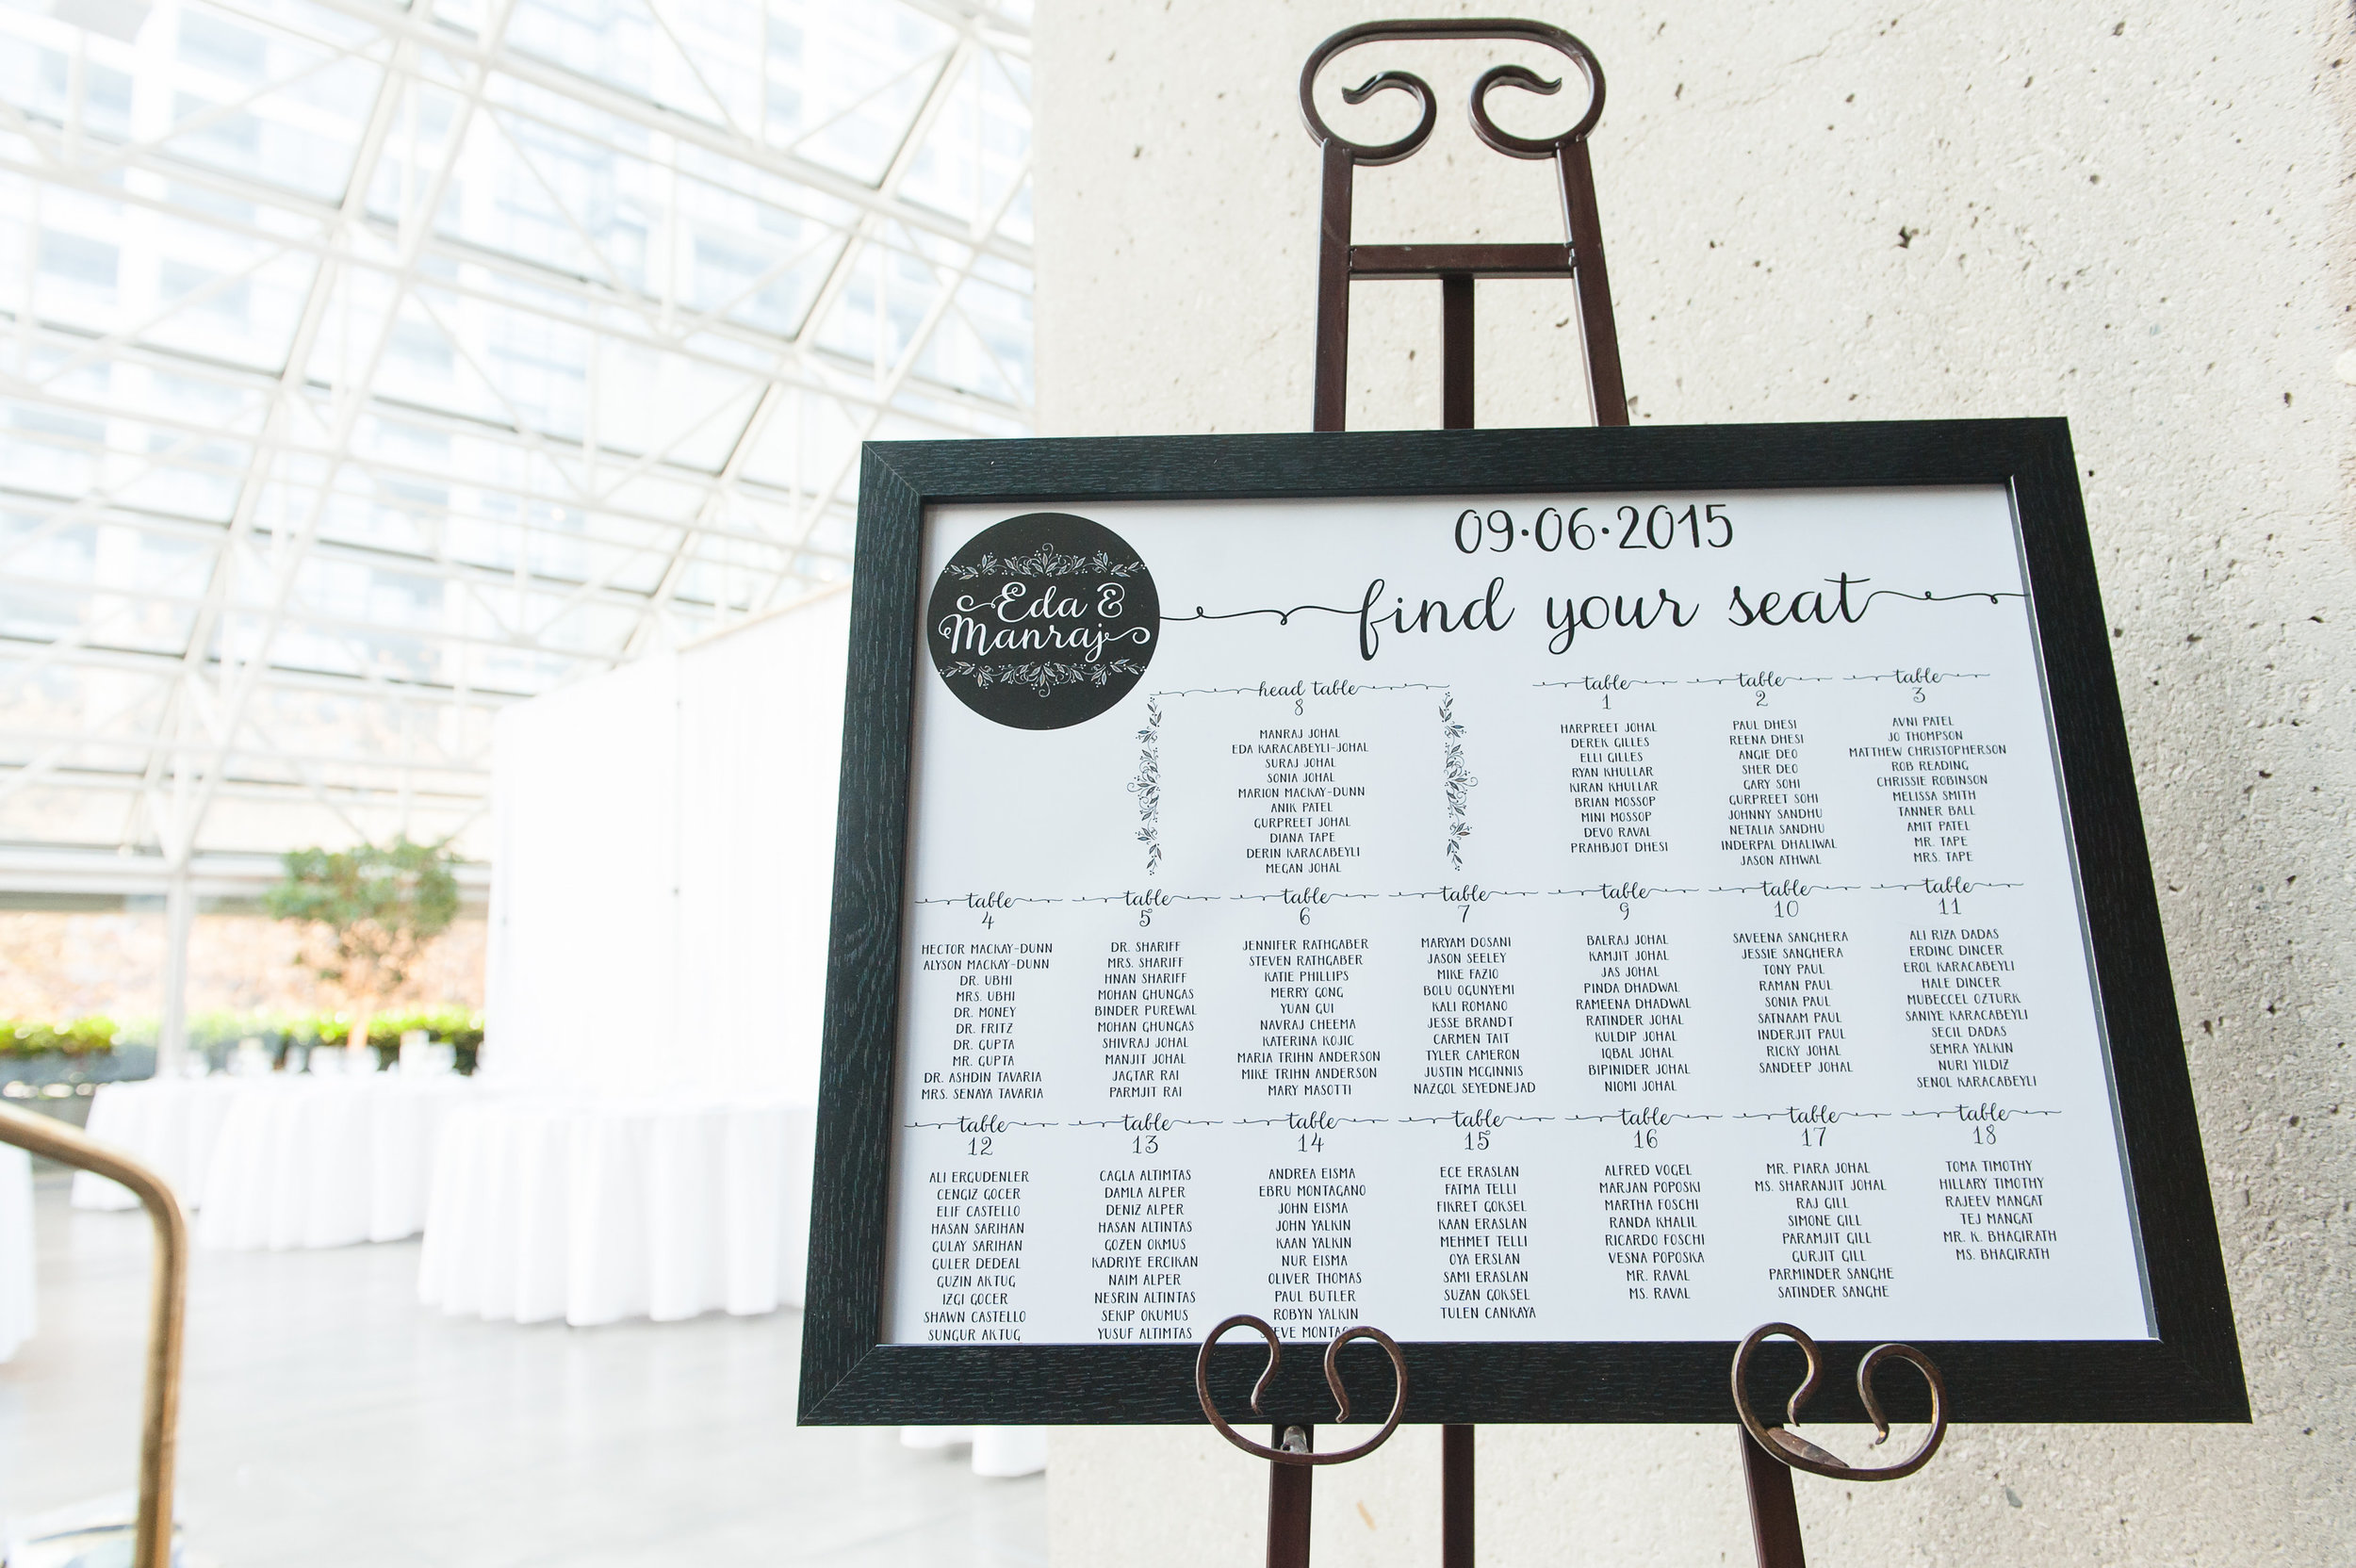 09·06·2015
Eda &
Manraj
find your seat
head table
8
MANRAJ JOHAL
EDA KARACABEYLI-JOHAL
SURAJ JOHAL
SONIA JOHAL
MARION MACKAY-DUNN
ANIK PATEL
GURPREET JOHAL
DIANA TAPE
DERIN KARACABEYLI
MEGAN JOHAL
table
1
HARPREET JOHAL
DEREK GILLES
ELLI GILLES
RYAN KHULLAR
KIRAN KHULLAR
BRIAN MOSSOP
MINI MOSSOP
DEVO RAVAL
PRAHBJOT DHESI
table
2
PAUL DHESI
REENA DHESI
ANGIE DEO
SHER DEO
GARY SOHI
GURPREET SOHI
JOHNNY SANDHU
NETALIA SANDHU
INDERPAL DHALIWAL
JASON ATHWAL
table
3
AVNI PATEL
JO THOMPSON
MATTHEW CHRISTOPHERSON
ROB READING
CHRISSIE ROBINSON
MELISSA SMITH
TANNER BALL
AMIT PATEL
MR. TAPE
MRS. TAPE
table
4
HECTOR MACKAY-DUNN
ALYSON MACKAY-DUNN
DR. UBHI
MRS. UBHI
DR. MONEY
DR. FRITZ
DR. GUPTA
MR. GUPTA
DR. ASHDIN TAVARIA
MRS. SENAYA TAVARIA
table
5
DR. SHARIFF
MRS. SHARIFF
HNAN SHARIFF
MOHAN GHUNGAS
BINDER PUREWAL
MOHAN GHUNGAS
SHIVRAJ JOHAL
MANJIT JOHAL
JAGTAR RAI
PARMJIT RAI
table
6
JENNIFER RATHGABER
STEVEN RATHGABER
KATIE PHILLIPS
MERRY GONG
YUAN GUI
NAVRAJ CHEEMA
KATERINA KOJIC
MARIA TRIHN ANDERSON
MIKE TRIHN ANDERSON
MARY MASOTTI
table
7
MARYAM DOSANI
JASON SEELEY
MIKE FAZIO
BOLU OGUNYEMI
KALI ROMANO
JESSE BRANDT
CARMEN TAIT
TYLER CAMERON
JUSTIN MCGINNIS
NAZGOL SEYEDNEJAD
table
9
BALRAJ JOHAL
KAMJIT JOHAL
JAS JOHAL
PINDA DHADWAL
RAMEENA DHADWAL
RATINDER JOHAL
KULDIP JOHAL
IQBAL JOHAL
BIPINIDER JOHAL
NIOMI JOHAL
table
10
SAVEENA SANGHERA
JESSIE SANGHERA
TONY PAUL
RAMAN PAUL
SONIA PAUL
SATNAAM PAUL
INDERJIT PAUL
RICKY JOHAL
SANDEEP JOHAL
table
11
ALI RIZA DADAS
ERDINC DINCER
EROL KARACABEYLI
HALE DINCER
MUBECCEL OZTURK
SANIYE KARACABEYLI
SECIL DADAS
SEMRA YALKIN
NURI YILDIZ
SENOL KARACABEYLI
table
12
ALI ERGUDENLER
CENGIZ GOCER
ELIF CASTELLO
HASAN SARIHAN
GULAY SARIHAN
GULER DEDEAL
GUZIN AKTUG
IZGI GOCER
SHAWN CASTELLO
SUNGUR AKTUG
table
13
CAGLA ALTIMTAS
DAMLA ALPER
DENIZ ALPER
HASAN ALTINTAS
GOZEN OKMUS
KADRIYE ERCIKAN
NAIM ALPER
NESRIN ALTINTAS
SEKIP OKUMUS
YUSUF ALTIMTAS
table
14
ANDREA EISMA
EBRU MONTAGANO
JOHN EISMA
JOHN YALKIN
KAAN YALKIN
NUR EISMA
OLIVER THOMAS
PAUL BUTLER
ROBYN YALKIN
table
15
ECE ERASLAN
FATMA TELLI
FIKRET GOKSEL
KAAN ERASLAN
MEHMET TELLI
OYA ERSLAN
SAMI ERASLAN
SUZAN GOKSEL
TULEN CANKAYA
table
16
ALFRED VOGEL
MARJAN POPOSKI
MARTHA FOSCHI
RANDA KHALIL
RICARDO FOSCHI
VESNA POPOSKA
MR. RAVAL
MS. RAVAL
table
17
MR. PIARA JOHAL
MS. SHARANJIT JOHAL
RAJ GILL
SIMONE GILL
PARAMJIT GILL
GURJIT GILL
PARMINDER SANGHE
SATINDER SANGHE
table
18
TOMA TIMOTHY
HILLARY TIMOTHY
RAJEEV MANGAT
TEJ MANGAT
MR. K. BHAGIRATH
MS. BHAGIRATH